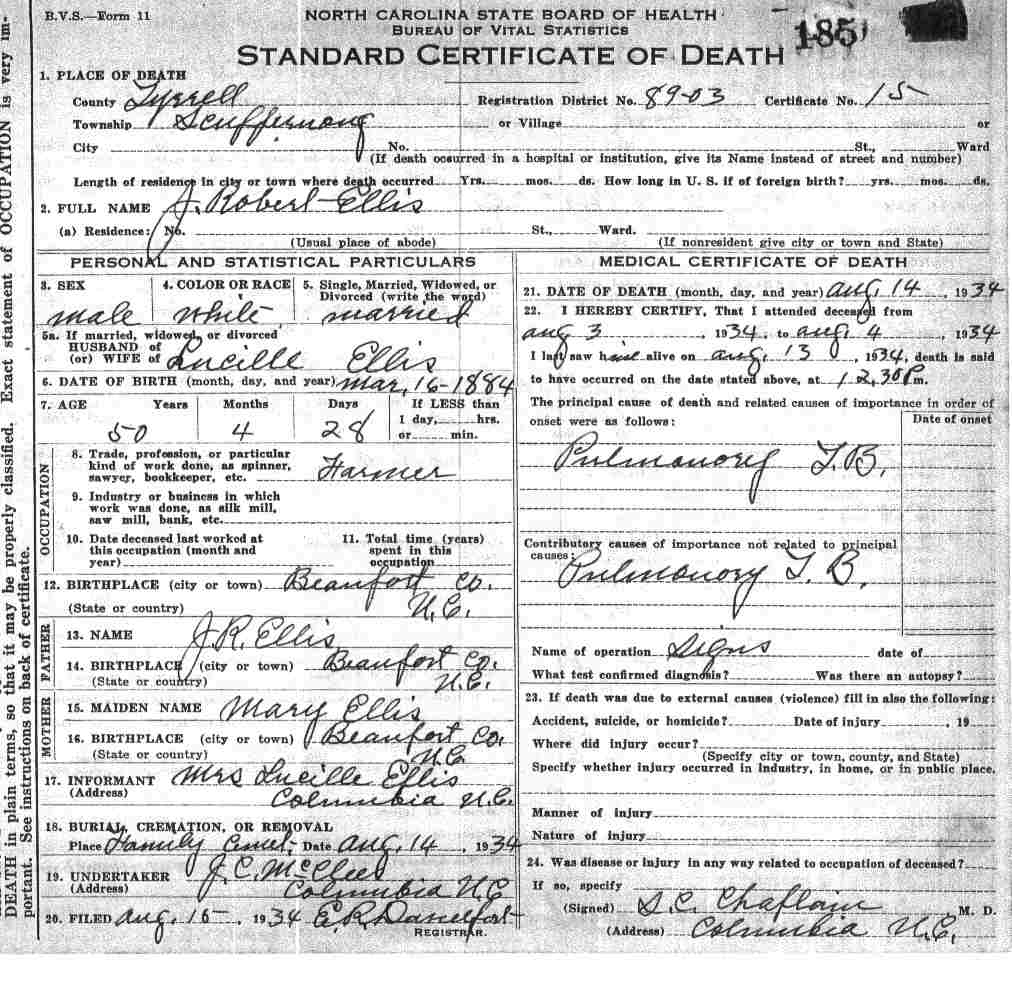 B.V.S.—Form 11
NORTH CAROLINA STATE BOARD OF HEALTH
BUREAU OF VITAL STATISTICS
185
STANDARD CERTIFICATE OF DEATH
1. PLACE OF DEATH
County Tyrrell Registration District No. 89-03 Certificate No. 15
Township Scuppernong or Village or
City No. St., Ward
(If death occurred in a hospital or institution, give its Name instead of street and number)
Length of residence in city or town where death occurred Yrs. mos. ds. How long in U. S. if of foreign birth? yrs. mos. ds.
2. FULL NAME J. Robert Ellis
(a) Residence: No. St., Ward.
(Usual place of abode) (If nonresident give city or town and State)
PERSONAL AND STATISTICAL PARTICULARS
3. SEX 4. COLOR OR RACE 5. Single, Married, Widowed, or
Divorced (write the word)
male white married
5a. If married, widowed, or divorced
HUSBAND of
(or) WIFE of Lucille Ellis
6. DATE OF BIRTH (month, day, and year) Mar, 16-1884
7. AGE Years Months Days If LESS than
1 day, hrs.
50 4 28 or min.
OCCUPATION
8. Trade, profession, or particular
kind of work done, as spinner,
sawyer, bookkeeper, etc. Farmer
9. Industry or business in which
work was done, as silk mill,
saw mill, bank, etc.
10. Date deceased last worked at
this occupation (month and
year)
11. Total time (years)
spent in this
occupation
12. BIRTHPLACE (city or town) Beaufort Co.
(State or country) N.C.
FATHER
13. NAME J.R. Ellis
14. BIRTHPLACE (city or town) Beaufort Co.
(State or country) N.C.
MOTHER
15. MAIDEN NAME Mary Ellis
16. BIRTHPLACE (city or town) Beaufort Co.
(State or country) N.C
17. INFORMANT Mrs Lucille Ellis
(Address) Columbia N.C.
18. BURIAL, CREMATION, OR REMOVAL
Place Family Date Aug, 14, 1934
19. UNDERTAKER J.C. McClees
(Address) Columbia N.C
20. FILED Aug, 15, 1934 E.R.
REGISTRAR.
MEDICAL CERTIFICATE OF DEATH
21. DATE OF DEATH (month, day, and year) Aug, 14, 1934
22. I HEREBY CERTIFY, That I attended deceased from
Aug 3, 1934, to Aug. 4, 1934
I last saw him alive on Aug. 13, 1934, death is said
to have occurred on the date stated above, at 12,30 P m.
The principal cause of death and related causes of importance in order of
onset were as follows: Date of onset
Pulmonory T.B.
Contributory causes of importance not related to principal
causes:
Pulmonory T.B.
Name of operation date of
What test confirmed diagnosis? Was there an autopsy?
23. If death was due to external causes (violence) fill in also the following:
Accident, suicide, or homicide? Date of injury , 19
Where did injury occur?
(Specify city or town, county, and State)
Specify whether injury occurred in Industry, in home, or in public place.
Manner of injury
Nature of injury
24. Was disease or injury in any way related to occupation of deceased?
If so, specify
(Signed) S.C. Chaplain M. D.
(Address) Columbia N.C.
DEATH in plain terms, so that it may be properly classified. Exact statement of OCCUPATION is very im-
portant. See instructions on back of certificate.